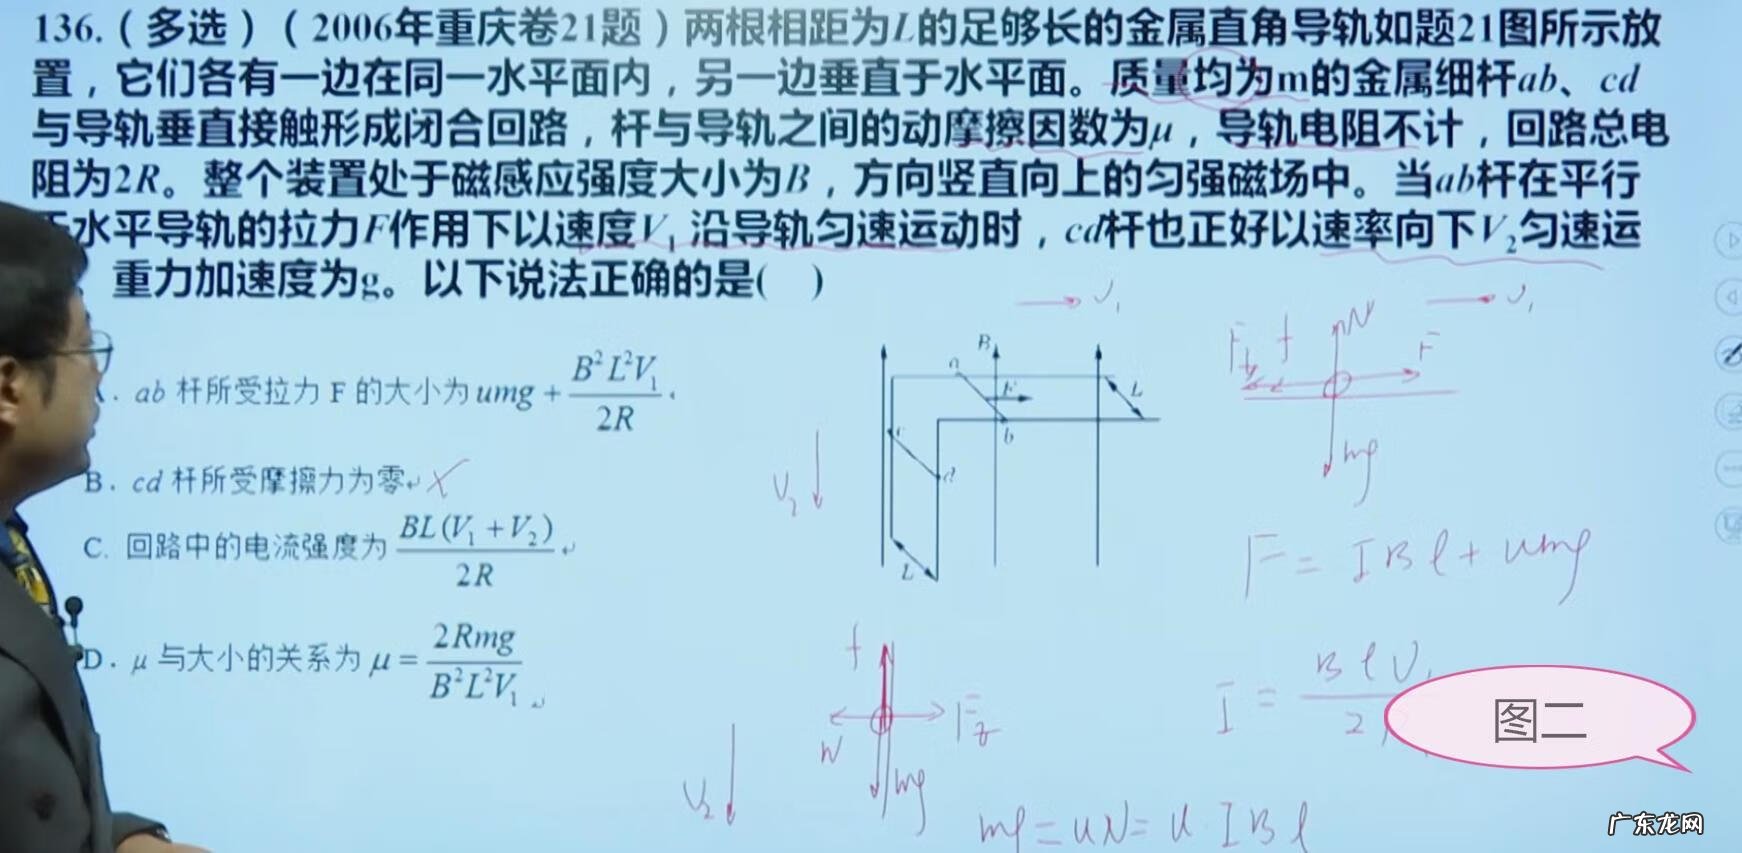 136.（多选）（2006年重庆卷21题）两根相距为L的足够长的金属直角导轨如题21图所示放
置，它们各有一边在同一水平面内，另一边垂直于水平面。质量均为m的金属细杆ab、cd
与导轨垂直接触形成闭合回路，杆与导轨之间的动摩擦因数为μ，导轨电阻不计，回路总电
阻为2R。整个装置处于磁感应强度大小为B，方向竖直向上的匀强磁场中。当ab杆在平行
水平导轨的拉力F作用下以速度V₁沿导轨匀速运动时，cd杆也正好以速率向下V₂匀速运
重力加速度为g。以下说法正确的是(   )
. ab 杆所受拉力 F 的大小为 umg + B²L²V₁/2R
B. cd 杆所受摩擦力为零 X
C. 回路中的电流强度为 BL(V₁ + V₂)/2R
D. μ 与大小的关系为 μ = 2Rmg/B²L²V₁
V₁
B
a
F
L
b
c
d
L
V₂
f
N
F
V₁
mg
F = IBl + umg
f
N
mg
V₂
I = BlV₁/2
图二
mg = uN = u·IBl
广东龙网